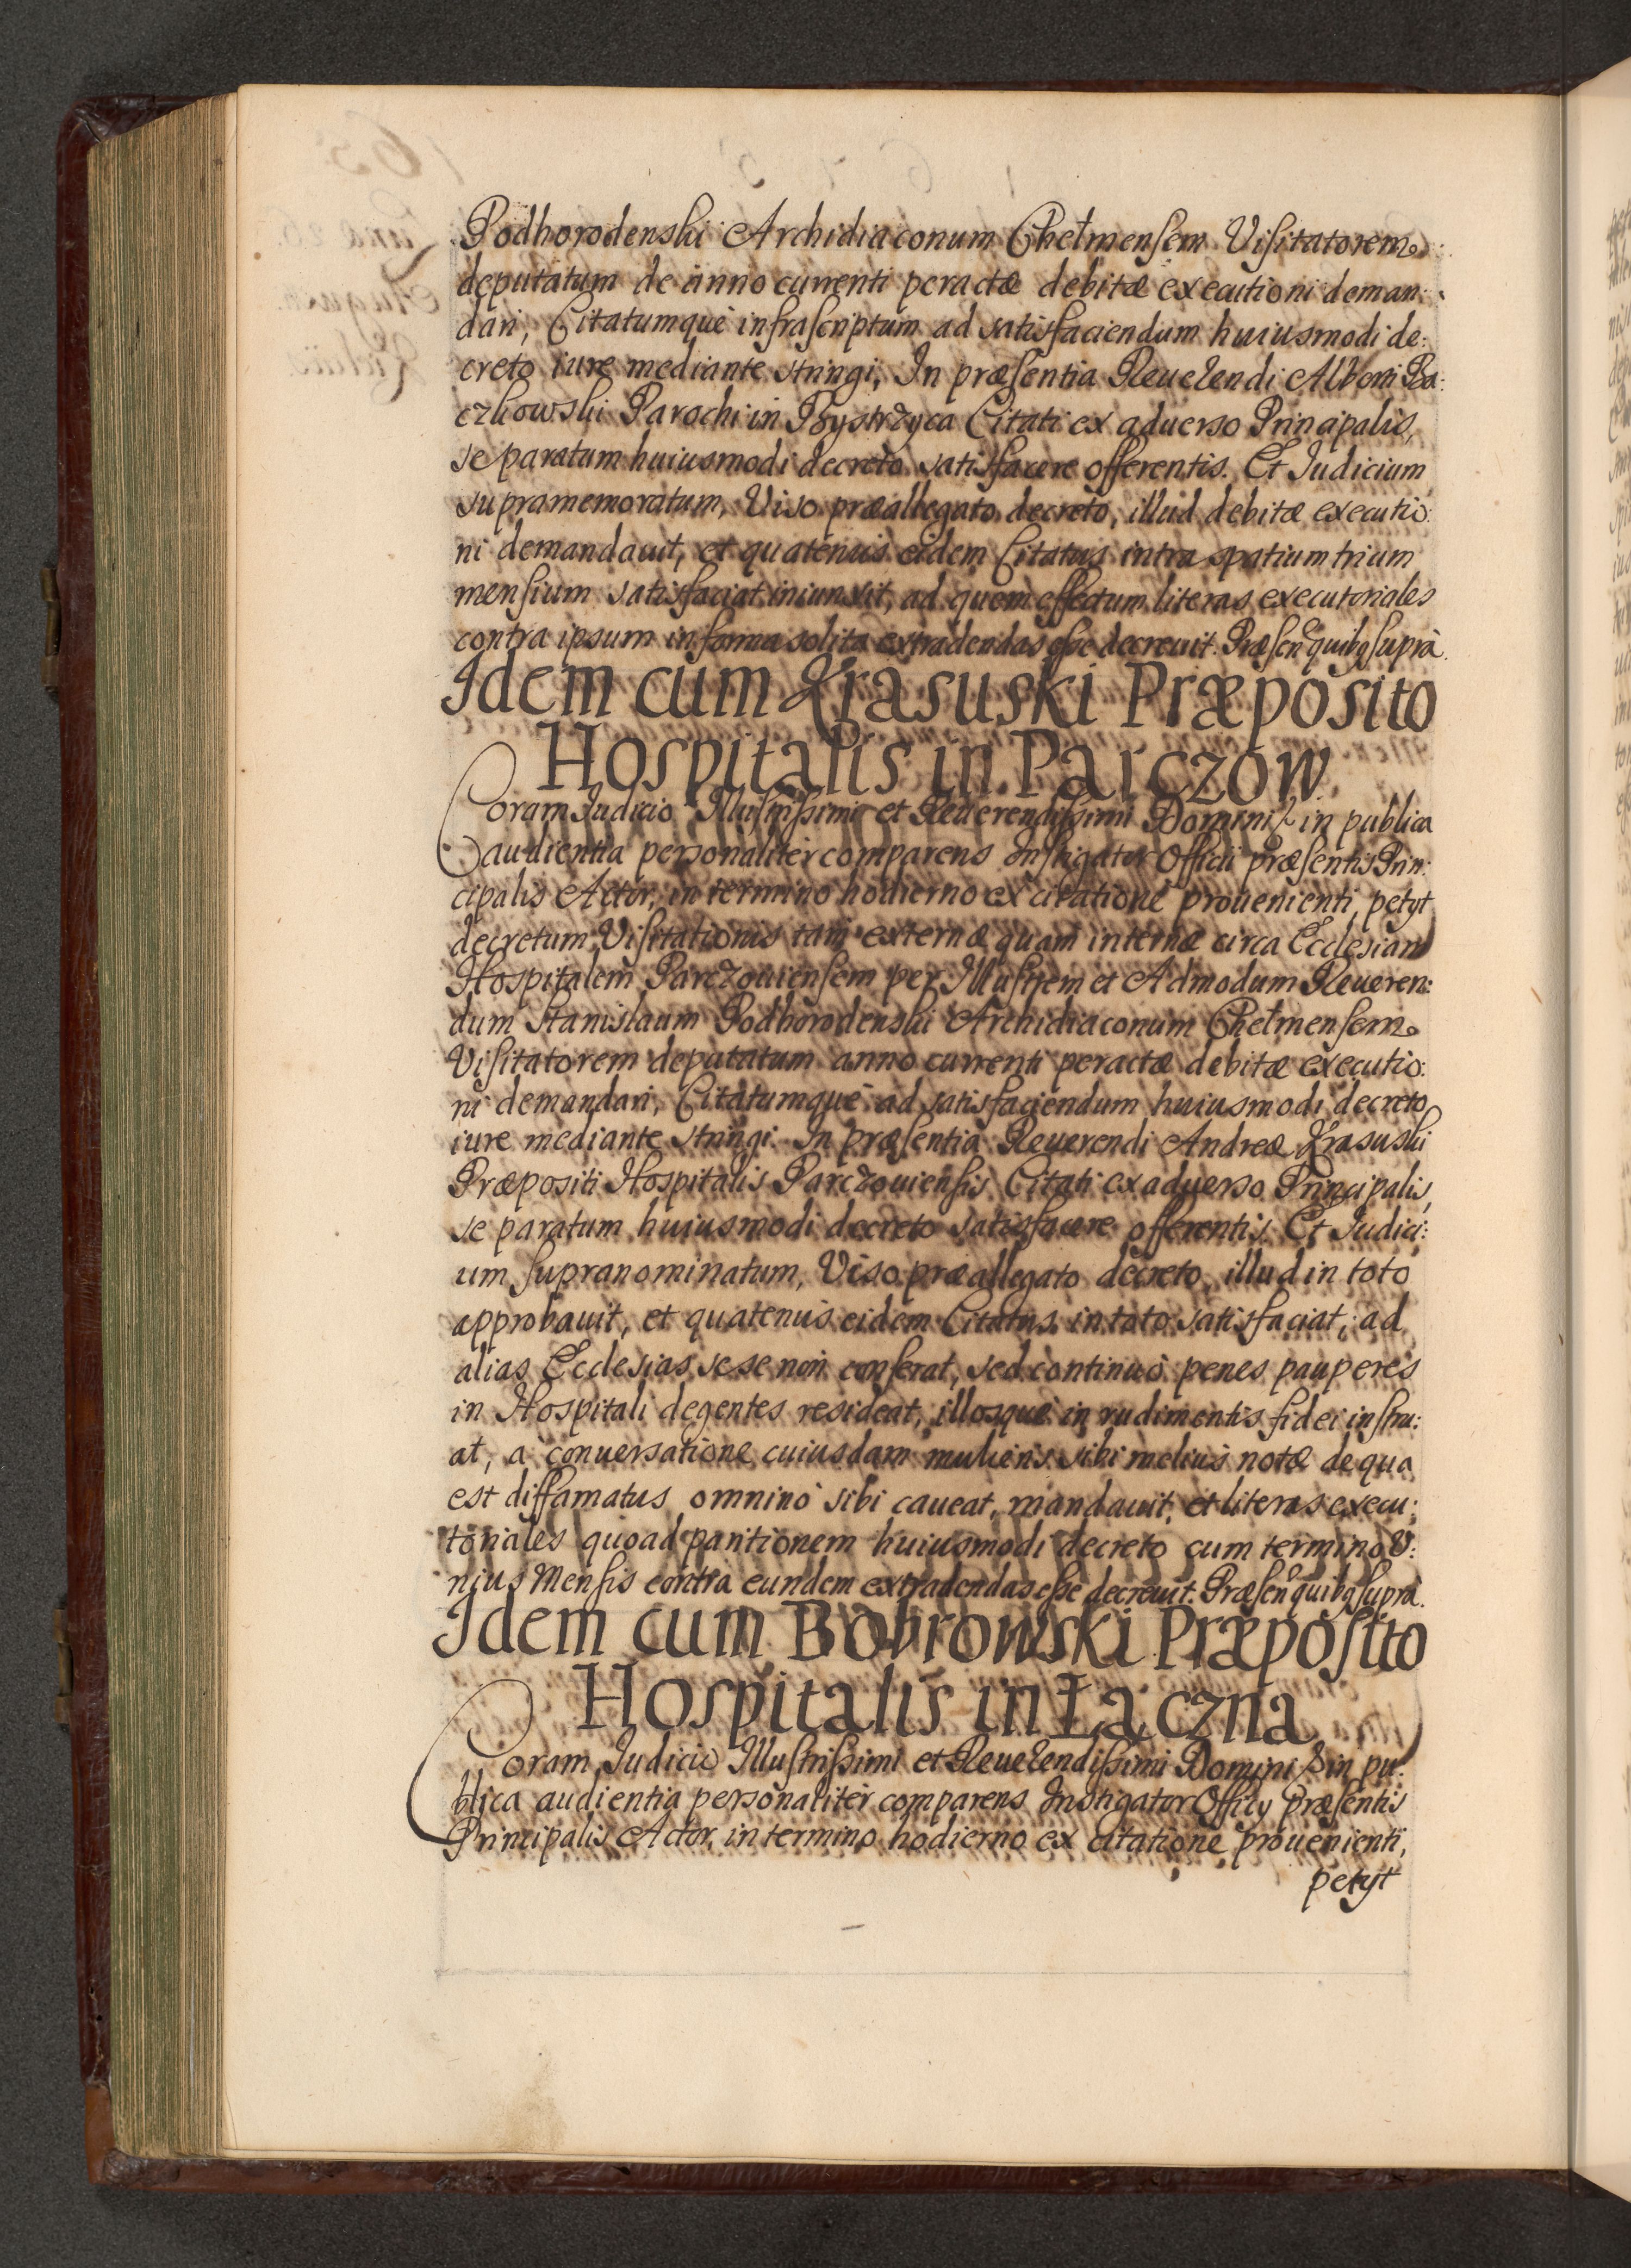 Podhorodenski Archidiaconum Chełmensem Visitatorem
deputatum de anno currenti peractæ debitæ executioni deman:
dari, Citatumque infrascriptum ad satisfaciendum huiusmodi de:
creto iure mediante stringi, In præsentia Reuerendi Alberti Ba:
czkowski Parochi in Bystrzyca Citati ex aduerso Principalis,
se paratum huiusmodi decreto satisfacere offerentis. Et Iudicium
supramemoratum, Viso præallegato decreto, illud debitæ executio:
ni demandauit, et quatenus eidem Citatus intra spatium trium
mensium satisfaciat iniunxit, ad quem effectum literas executoriales
contra ipsum in forma solita extradendas esse decreuit. Præsen quibg supra.
Idem cum Krasuski Præposito
Hospitalis in Parczow.
Coram Iudicio Illustrissimi et Reuerendissimi Domini & in publica
audientia personaliter comparens Instigator Officii præsentis Prin:
cipalis Actor, in termino hodierno ex citatione prouenienti, petyt
decretum Visitationis tam externæ quam internæ circa Ecclesiam
Hospitalem Parczouiensem per Illustrem et Admodum Reueren:
dum Stanislaum Podhorodenski Archidiaconum Chełmensem
Visitatorem deputatum anno currenti peractæ debitæ executio:
ni demandari, Citatumque ad satisfaciendum huiusmodi decreto
iure mediante stringi. In præsentia Reuerendi Andreæ Krasuski
Præpositi Hospitalis Parczouiensis Citati ex aduerso Principalis,
se paratum huiusmodi decreto satisfacere offerentis. Et Iudici:
um supranominatum, Viso præallegato decreto, illud in toto
approbauit, et quatenus eidem Citatus in toto satisfaciat, ad
alias Ecclesias sese non conferat, sed continuò penes pauperes
in Hospitali degentes resideat, illosque in rudimentis fidei instru:
at, à conuersatione cuiusdam mulieris sibi melius notæ de qua
est diffamatus omninò sibi caueat, mandauit, et literas execu:
toriales quoad paritionem huiusmodi decreto cum termino V:
nius Mensis contra eundem extradendas esse decreuit. Præsen quibg supra.
Idem cum Bobrowski Præposito
Hospitalis in Łączna
Coram Iudicio Illustrissimi et Reuerendissimi Domini & in pu:
blica audientia personaliter comparens Instigator Officij præsentis
Principalis Actor, in termino hodierno ex citatione prouenienti,
petyt